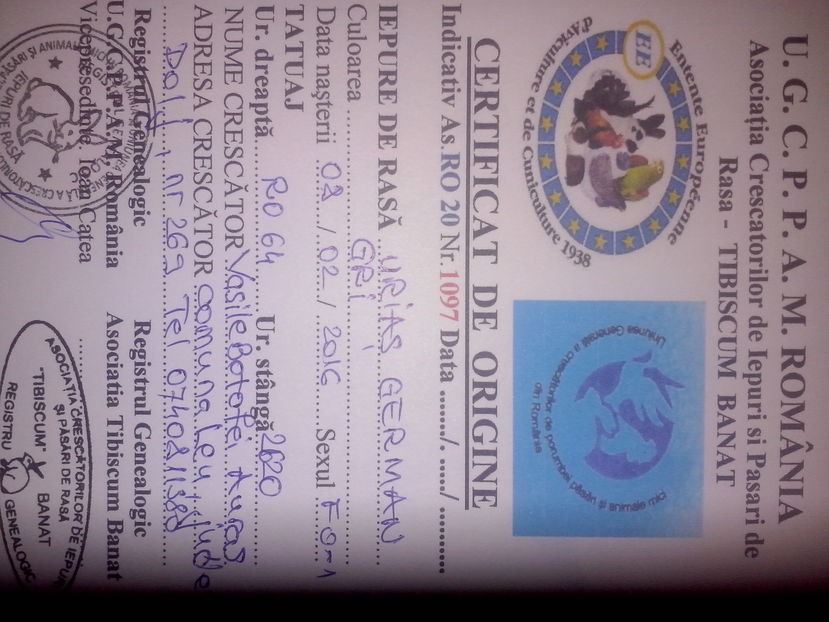 U. G. C. P. P. A. M. ROMÂNIA
Asociația Crescatorilor de Iepuri si Pasari de
Rasa - TIBISCUM BANAT
Entente Européenne
EE
d'Aviculture et de Cuniculture 1938
Uniunea Generală a crescătorilor de porumbei, păsări și animale mici
din România
CERTIFICAT DE ORIGINE
Indicativ As. RO 20 Nr. 1097 Data ......./. ...../ ..........
IEPURE DE RASĂ URIAȘ GERMAN
Culoarea GRI
Data nașterii 02 / 02 / 2016 Sexul F 0-1
TATUAJ
Ur. dreaptă RO 64 Ur. stângă 2620
NUME CRESCĂTOR Vasile Botofei
ADRESA CRESCĂTOR comuna Leu
Dolj nr 269 Tel
Registrul Genealogic Registrul Genealogic
U.G.C.P.P.A.M. România Asociatia Tibiscum Banat
Vicepresedinte Ioan Catea
IEPURI DE RASĂ
ASOCIAȚIA CRESCĂTORILOR DE IEPURI
ȘI PĂSĂRI DE RASĂ
"TIBISCUM" BANAT
REGISTRU GENEALOGIC